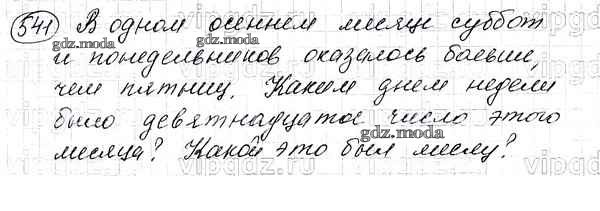 541 В одном осеннем месяце суббот
gdz.moda gdz.moda
и понедельников оказалось больше,
чем пятниц. Каким днем недели
было девятнадцатое число этого
gdz.moda
месяца? Какой это был месяц?
vipgdz